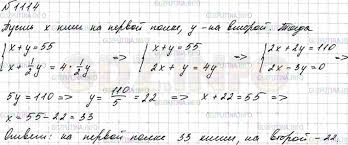 №1114
Пусть x книг на первой полке, y - на второй. Тогда
{x+y=55 => {x+y=55 => {2x+2y=110
{x+½y=4·½y {2x+y=4y {2x-3y=0
5y=110 => y=110/5=22 => x+22=55 =>
x=55-22=33
Ответ: на первой полке 33 книги, на второй - 22.